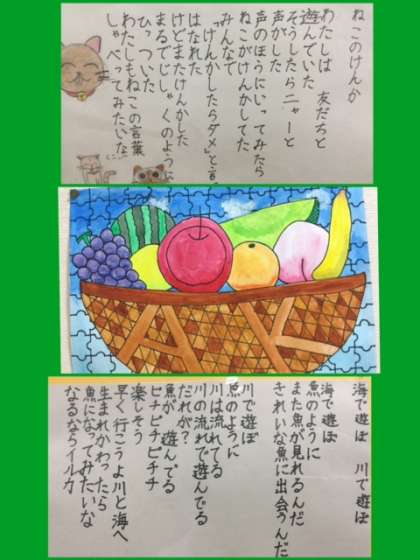 ねこのけんか
わたしは 友だちと
遊んでいた
そうしたらニャーと
声がした
声のほうにいってみたら
ねこがけんかしてた
みんなで
「けんかしたらダメ」と言
はなれた
けどまたけんかした
まるでじしゃくのように
ひっついた
わたしもねこの言葉
しゃべってみたいな
海で遊ぼ 川で遊ぼ
海で遊ぼ
魚のように
また魚が見れるんだ
きれいな魚に出会うんだ
川で遊ぼ
魚のように
川は流れてる
川の流れで遊んでる
だれが?
魚が 遊んでる
ピチピチピチチ
楽しそう
早く行こうよ川と海へ
生まれかわったら
魚になってみたいな
なるならイルカ